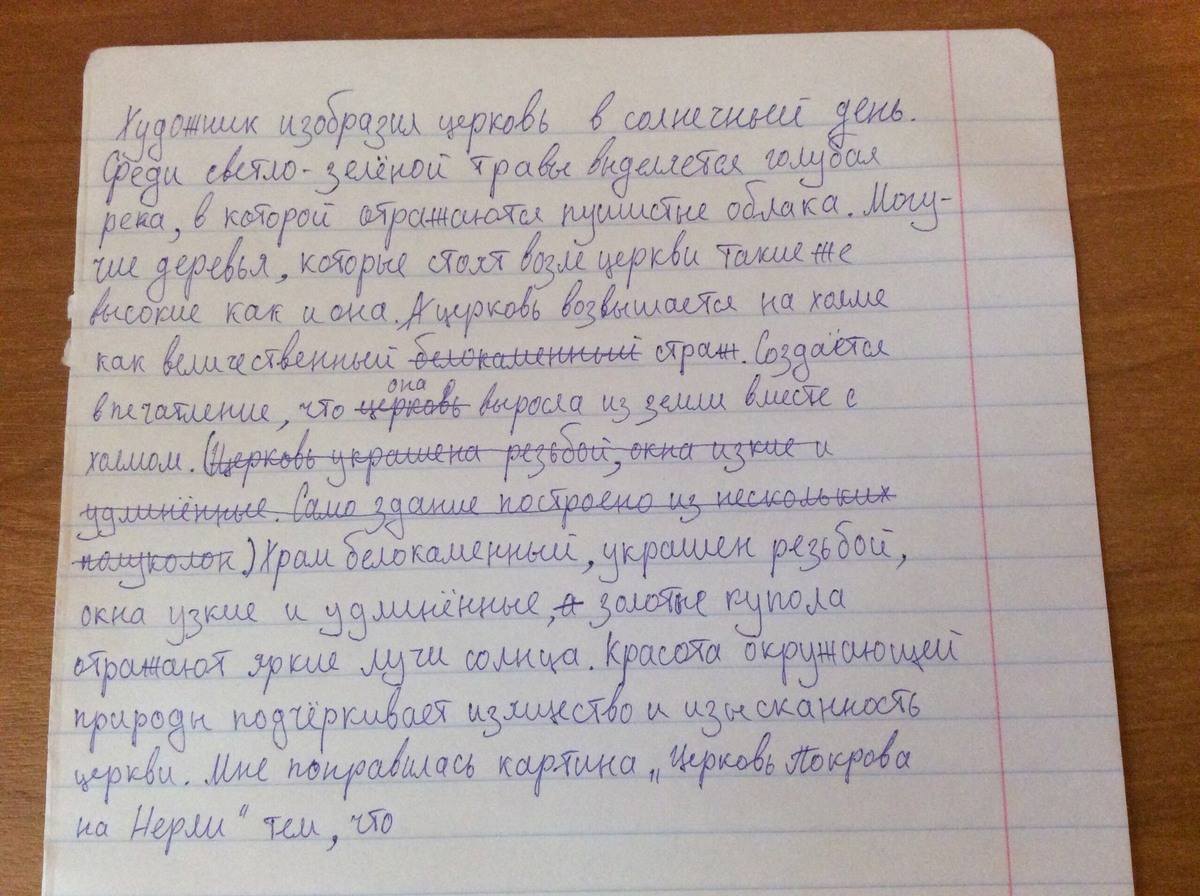 Художник изобразил церковь в солнечный день.
Среди светло-зелёной травы выделяется голубая
река, в которой отражаются пушистые облака. Могу-
чие деревья, которые стоят возле церкви такие же
высокие как и она. А церковь возвышается на холме
как величественный белокаменный страж. Создаётся
впечатление, что церковь она выросла из земли вместе с
холмом. (Церковь украшена резьбой, окна изкие и
удлинённые. Само здание построено из нескольких
полуколон.) Храм белокаменный, украшен резьбой,
окна узкие и удлинённые, а золотые купола
отражают яркие лучи солнца. Красота окружающей
природы подчёркивает изящество и изысканность
церкви. Мне понравилась картина „Церковь Покрова
на Нерли" тем, что